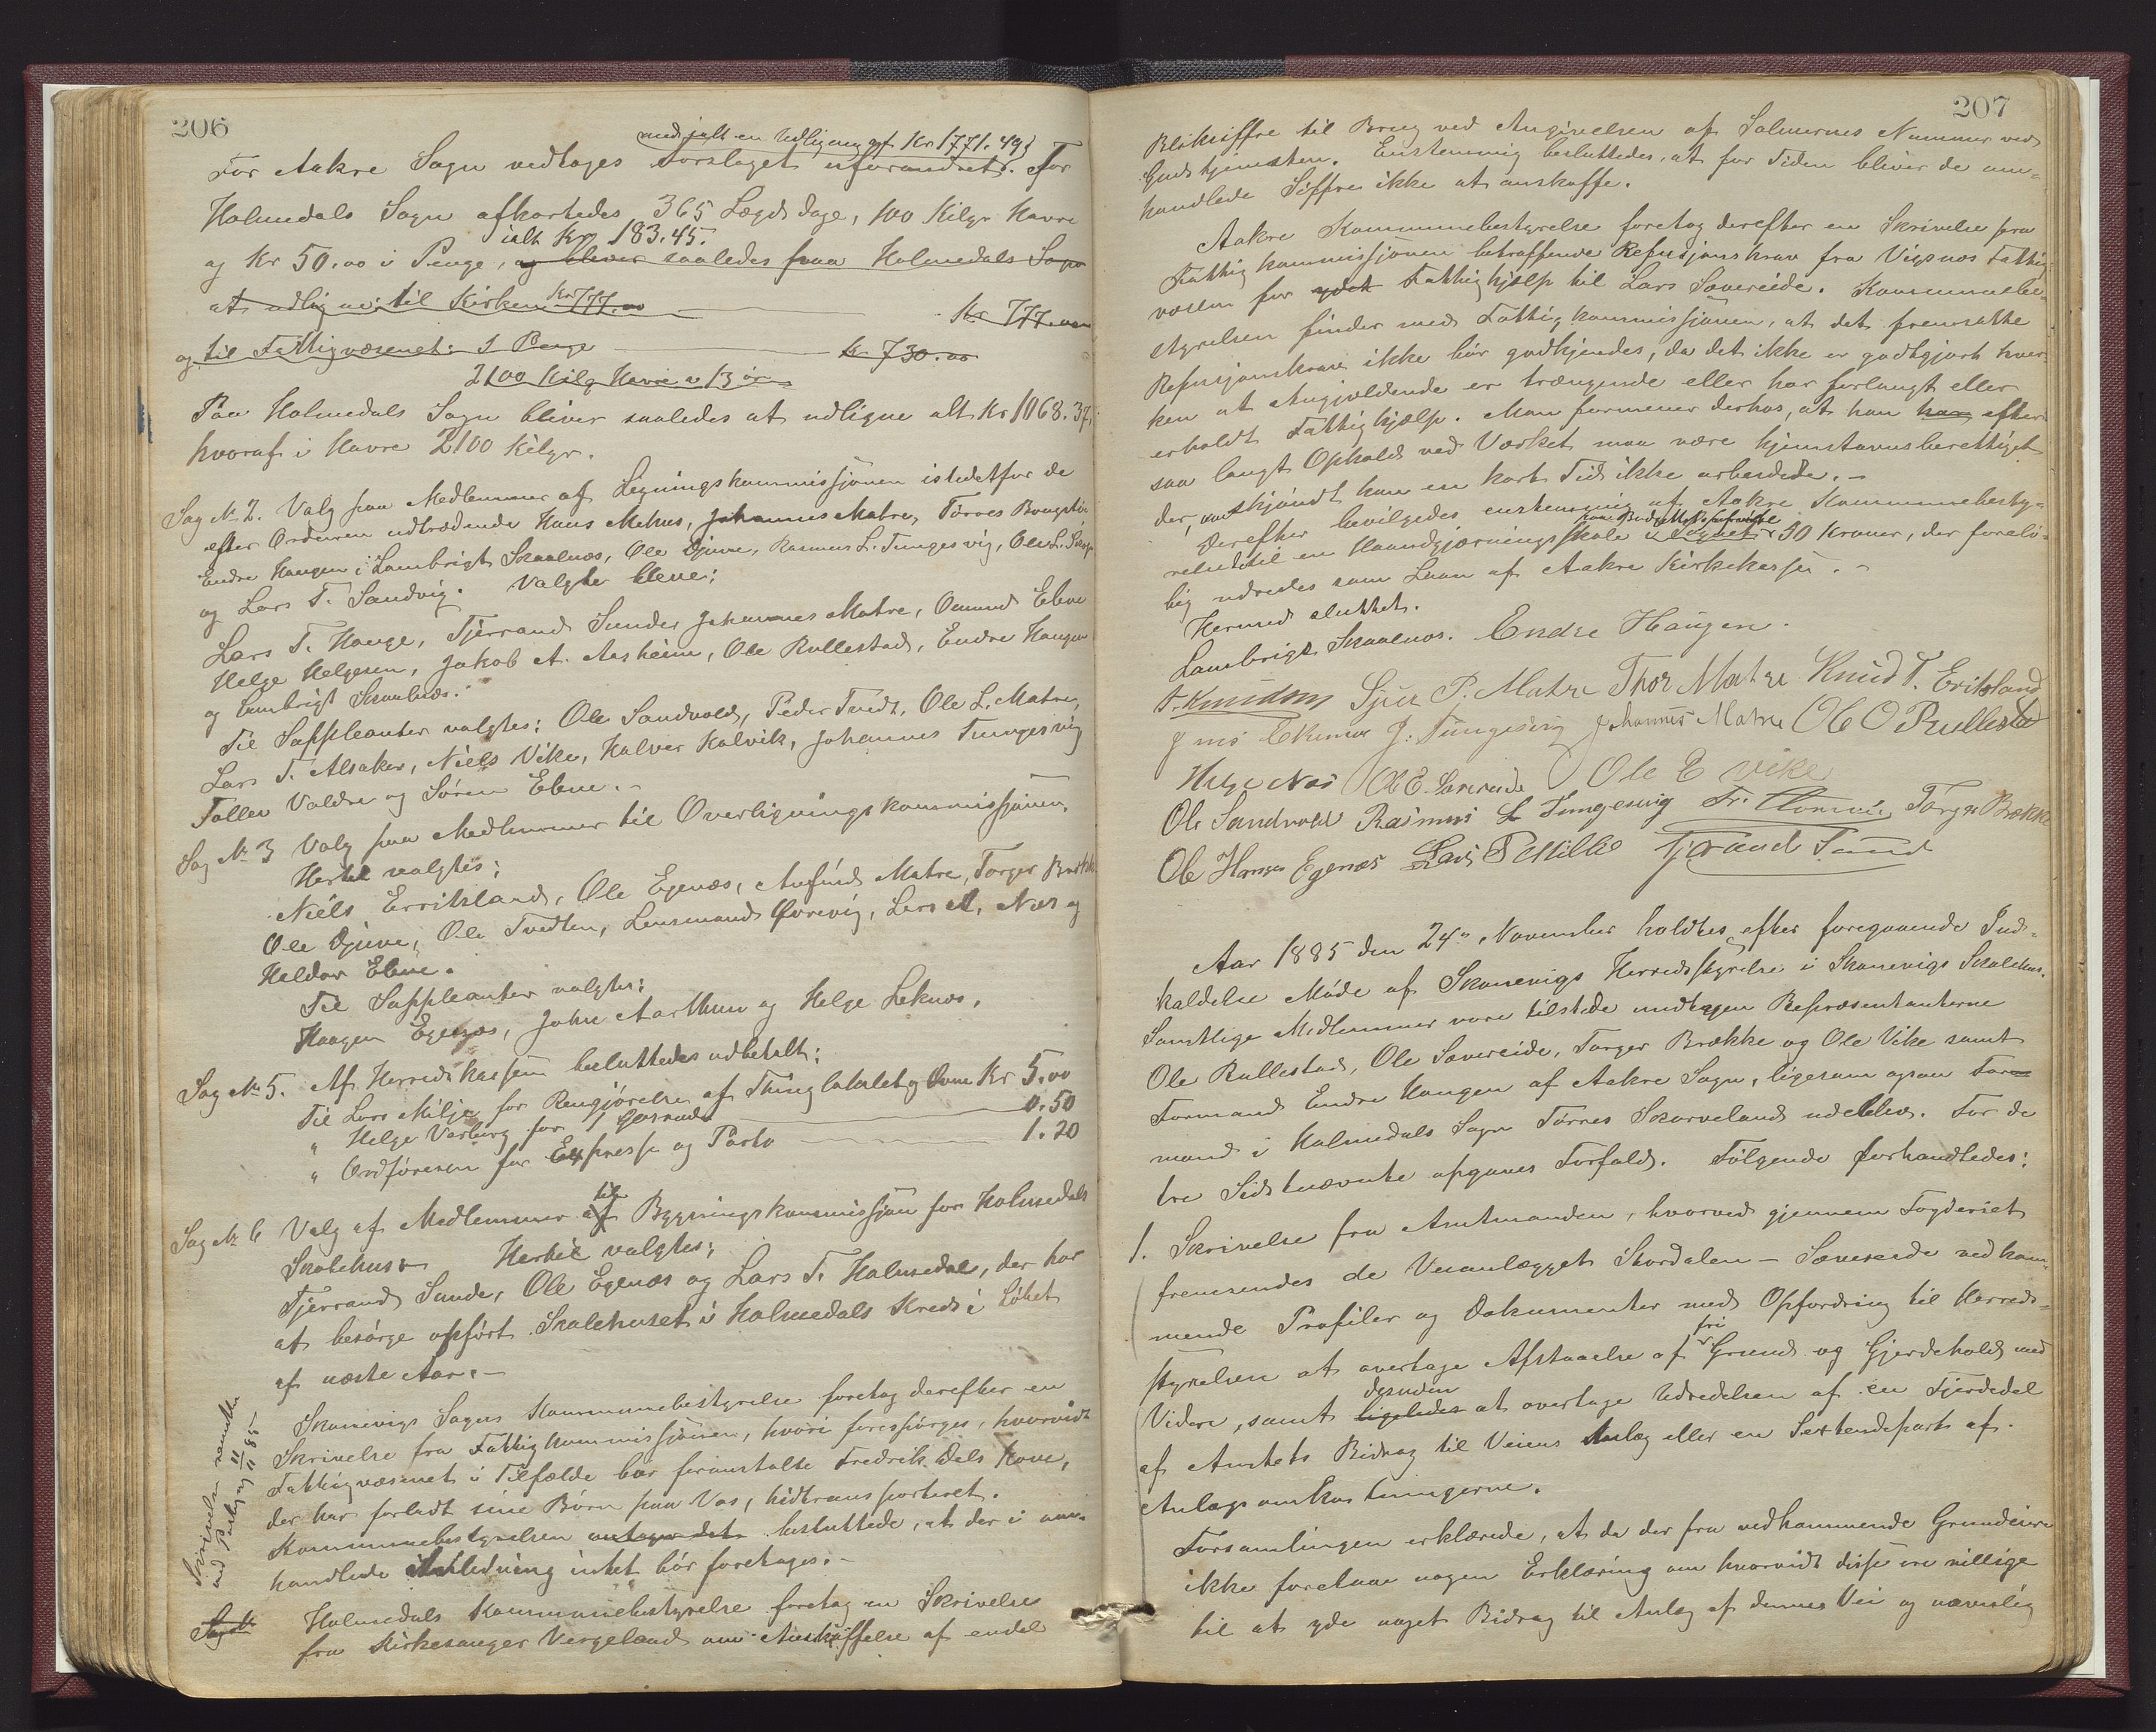 206
med ialt en Udligning af Kr 1771.49
For Aakre Sogn vedtoges Forslaget uforandret. For
Holmedals Sogn afkortedes 365 Lægdsdage, 100 Kilgr Havre
ialt Kr 183.45.
og Kr 50.00 i Penge, og bliver saaledes paa Holmedals Sogn
at udligne: til Kirken Kr 777.00 Kr 777.00
og til Fattigvæsenet: I Penge Kr 730.00
2100 Kilg Havre a 13 øre
Paa Holmedals Sogn bliver saaledes at udligne alt Kr 1068.37,
hvoraf i Havre 2100 Kilgr.
Sag No 2. Valg paa Medlemmer af Ligningskommissjonen istedetfor de
efter Ordenen udtrædende Hans Mehus, Johannes Matre, Tørres
Endre Haugen, Lambrigt Skaalnæs, Ole Djuve, Rasmus L. Tungesvig, Ole L.
og Lars T. Sandvig. Valgte bleve:
Lars T. Hauge, Tjerrand Sunde, Johannes Matre, Omund Ebne
Helge Helgesen, Jakob A. Aasheim, Ole Rullestad, Endre Haugen
og Lambrigt Skaalnæs.
Til Suppleanter valgtes: Ole Sandvold, Peder Tvedt, Ole L. Matre,
Lars T. Alsaker, Niels Vike, Halvor Kalvik, Johannes Tungesvig
Tollev Valdre og Søren Ebne.
Sag No 3 Valg paa Medlemmer til Overligningskommissjonen.
Hertil valgtes:
Niels Erriksland, Ole Egenæs, Anfind Matre, Torger Brække
Ole Djuve, Ole Tvedten, Lensmand Øvrevig, Lars A. Næs og
Haldor Ebne.
Til Suppleanter valgtes:
Haagen Egenæs, John Aarthun og Helge Leknæs.
Sag No 5. Af Herredskassen besluttedes udbetalt:
Til Lars Milje for Rengjørelse af Thinglokalet og Ovne Kr 5.00
" Helge Varberg for 1 0.50
" Ordføreren for Expresse og Porto 1.20
til
Sag No 6 Valg af Medlemmer af Bygningskommissjon for Holmedals
Skolehus. Hertil valgtes:
Tjerrand Sunde, Ole Egenæs og Lars T. Holmedal, der har
at besørge opført Skolehuset i Holmedals Kreds i Løbet
af næste Aar.
Skrivelsen
med Paategning 11/11 85
Skonevigs Sogns Kommunebestyrelse foretog derefter en
Skrivelse fra Fattigkommissjonen, hvori forespørges, hvorvidt
Fattigvæsenet i Tilfælde bør foranstalte Fredrik Dals Kone,
der har forladt sine Børn paa Vos, hidtransporteret.
Kommunebestyrelsen antager det besluttede, at der i om-
handlede Anledning intet bør foretages.
Sag No
Holmedals Kommunebestyrelse foretog en Skrivelse
fra Kirkesanger Vergeland om Anskaffelse af endel
207
Blikziffre til Brug ved Angivelsen af Salmernes Nummer ved
Gudstjenesten. Enstemmig besluttedes, at for Tiden bliver de om-
handlede Siffre ikke at anskaffe.
Aakre Kommunebestyrelse foretog derefter en Skrivelse fra
Fattigkommissjonen betræffende Refusjonskrav fra Vigsnæs Fattig-
væsen for ydet Fattighjælp til Lars Sævereide. Kommunebe-
styrelsen finder med Fattigkommissjonen, at det fremsatte
Refusjonskrav ikke bør godkjendes, da det ikke er godtgjort hver-
ken at Angjældende er trængende eller har forlangt eller
erholdt Fattighjælp. Man formener derhos, at han har efter
saa langt Ophold ved Værket maa være hjemstavnsberettiget
der, omskjøndt han en kort Tid ikke arbeidede.
Derefter bevilgedes enstemmig af Aakre Kommunebesty-
relse til en Haandgjærningsskole i Sognet 50 Kroner, der forelø-
big udredes som Laan af Aakre Kirkekasse.
Hermed sluttet.
Lambrigt Skaalnæs. Endre Haugen.
T. Knudsen Sjur P. Matre Thor Matre Knud T. Eriksland
J. Tungesvig Johannes Matre Ole O Rullestad
Helge Næs Ole E. Sævereide Ole E Vike
Ole Sandvold Rasmus L Tungesvig Torger Brække
Ole Hansen Egenæs Lars P Millie Tjerand Sund
Aar 1885 den 24de November holdtes efter foregaaende Ind-
kaldelse Møde af Skonevigs Herredsstyrelse i Skonevigs Skolehus.
Samtlige Medlemmer vare tilstede undtagen Repræsentanterne
Ole Rullestad, Ole Sævereide, Torger Brække og Ole Vike samt
Formand Endre Haugen af Aakre Sogn, ligesom ogsaa For-
mand i Holmedals Sogn Tørres Skarveland udeblev. For de
tre Sidstnævnte opgaves Forfald. Følgende forhandledes:
1. Skrivelse fra Amtmanden, hvorved gjennem Fogderiet
fremsendes de Veianlægget Stordalen - Sævereide vedkom-
mende Profiler og Dokumenter med Opfordring til Herreds-
fri
styrelsen at overtage Afstaaelse af Grund og Gjerdehold med
desuden
Videre, samt ligeledes at overtage Udredelsen af en Fjerdedel
af Amtets Bidrag til Veiens Anlæg eller en Sextendepart af
Anlægsomkostningerne.
Forsamlingen erklærede, at da der fra vedkommende Grundeiere
ikke foreligger nogen Erklæring om hvorvidt disse ere villige
til at yde noget Bidrag til Anlæg af denne Vei og navnlig